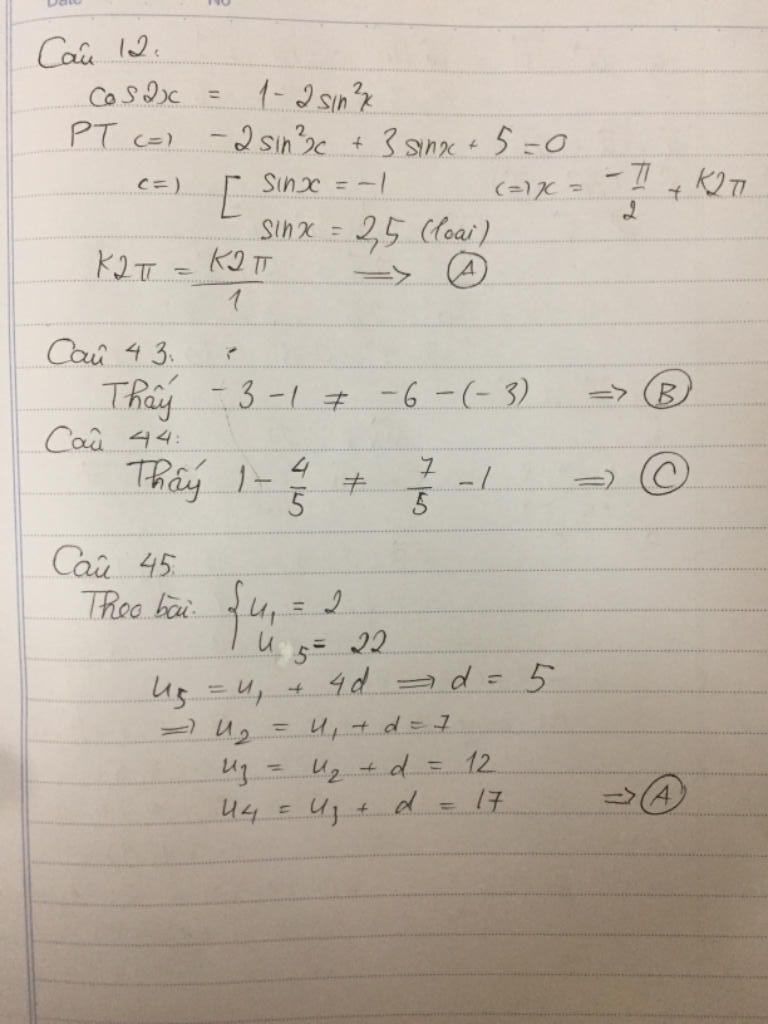 Date No
Câu 12:
cos2x = 1 - 2sin²x
PT <=> -2sin²x + 3sinx + 5 = 0
<=> [ sinx = -1 <=> x = -π/2 + K2π
sinx = 2,5 (loại)
K2π = K2π/1 => A
Câu 43:
Thấy -3-1 ≠ -6-(-3) => B
Câu 44:
Thấy 1 - 4/5 ≠ 7/5 - 1 => C
Câu 45:
Theo bài: { u₁ = 2
u₅ = 22
u₅ = u₁ + 4d => d = 5
=> u₂ = u₁ + d = 7
u₃ = u₂ + d = 12
u₄ = u₃ + d = 17 => A